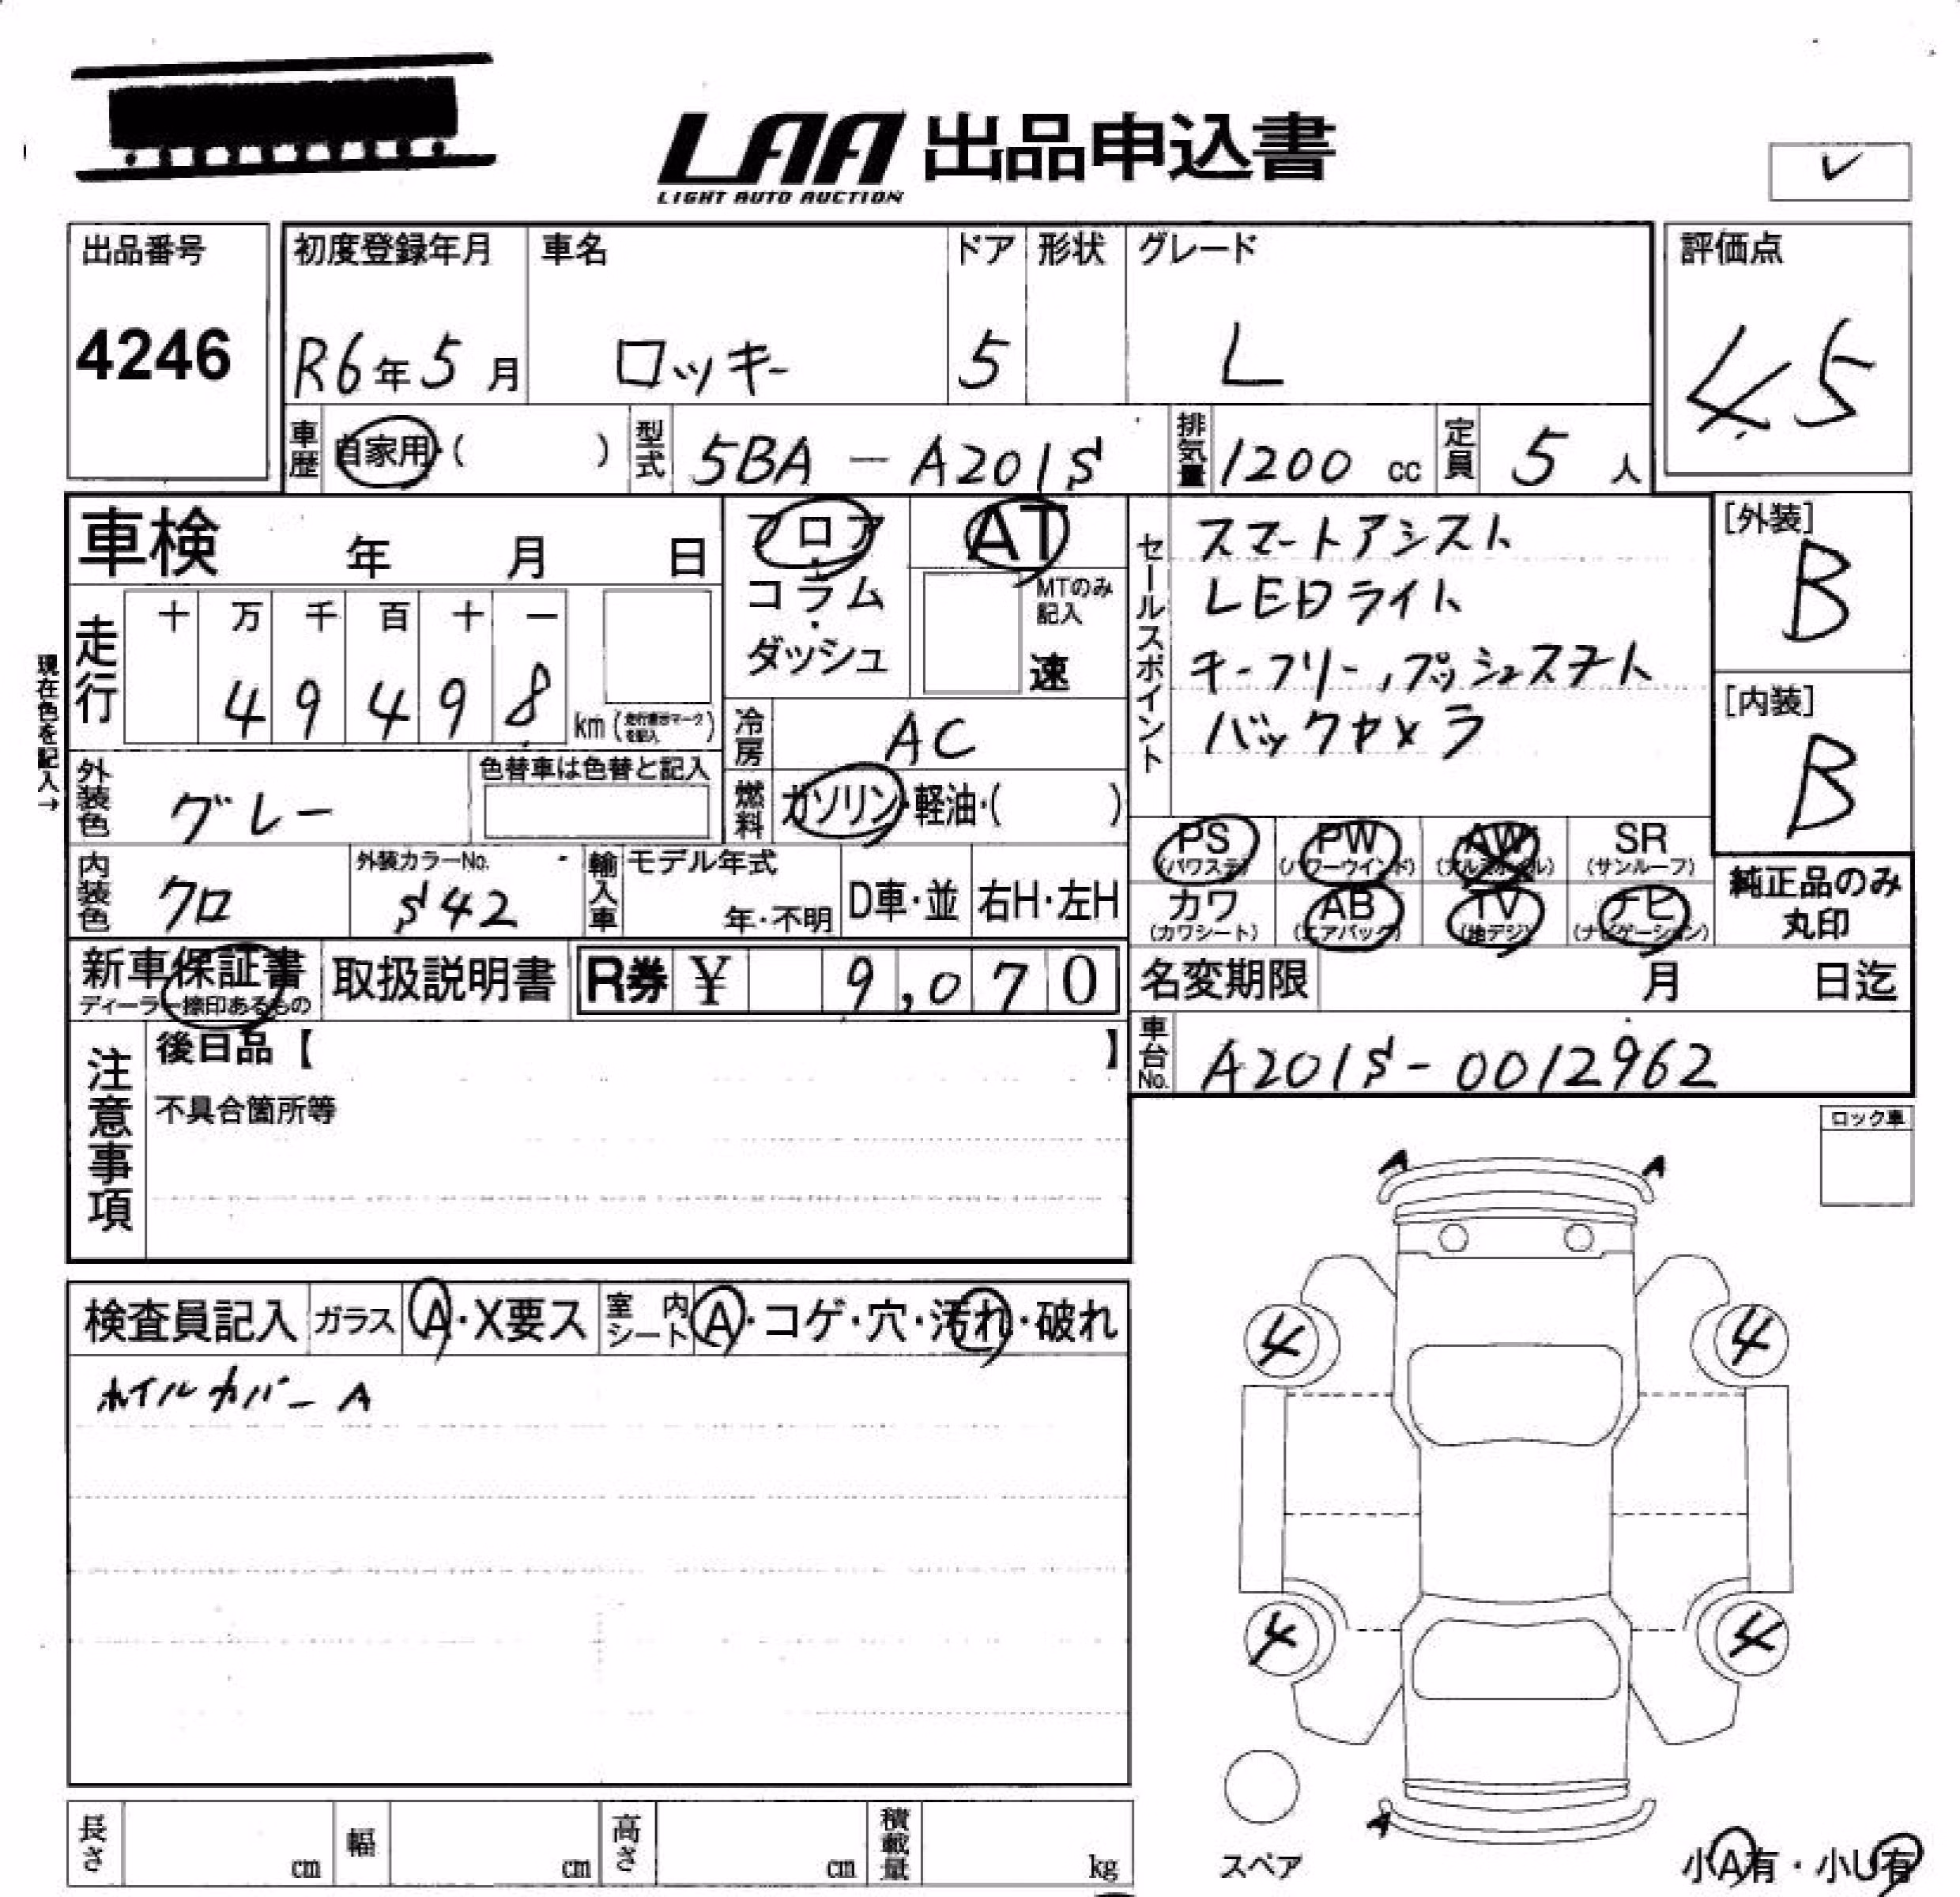 LAA 出品申込書
LIGHT AUTO AUCTION
出品番号
4246
初度登録年月
R6年5月
車名
ロッキー
ドア
5
形状
グレード
L
評価点
4.5
車歴
自家用・( )
型式
5BA-A201S
排気量
1200 cc
定員
5人
車検 年 月 日
フロア・コラム・ダッシュ
AT
MTのみ記入
速
走行
十 万 千 百 十 一
4 9 4 9 8
km
現在色を記入→
冷房
AC
外装色
グレー
色替車は色替と記入
燃料
ガソリン・軽油・( )
セールスポイント
スマートアシスト
LEDライト
キーフリー,プッシュスタート
バックカメラ
[外装]
B
[内装]
B
内装色
クロ
外装カラーNo.
S42
輸入車
モデル年式
年・不明
D車・並
右H・左H
PS (パワステ)
PW (パワーウインド)
AW (アルミホイル)
SR (サンルーフ)
カワ (カワシート)
AB (エアバック)
TV (地デジ)
ナビ (ナビゲーション)
純正品のみ
丸印
新車保証書
ディーラー捺印あるもの
取扱説明書
R券 ¥ 9,070
名変期限 月 日迄
車台No.
A201S-0012962
注意事項
後日品【 】
不具合箇所等
ロック車
A A
検査員記入
ガラス
A・X要ス
室内シート
A・コゲ・穴・汚れ・破れ
ホイルカバーA
4 4
4 4
A
スペア
小A有・小U有
長さ cm
幅 cm
高さ cm
積載量 kg